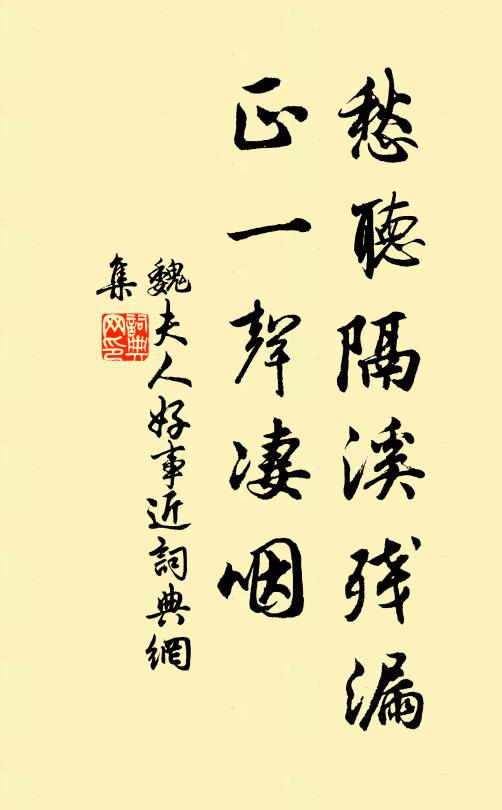 愁聽隔溪残漏
正一聲淒咽
魏夫人好事近詞典網
集
詞典
网印